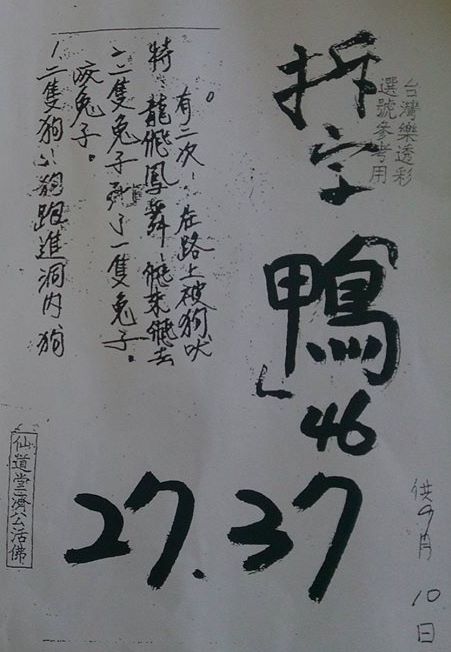 台灣樂透彩
選號參考用
拆字
鴨
46
27.37
有二次、在路上被狗吠
特、龍飛鳳舞、飛來飛去
二、二隻兔子死了一隻兔子。
咬兔子。
1、二隻狗、狗跑進洞內狗
仙道堂濟公活佛
供9月10日